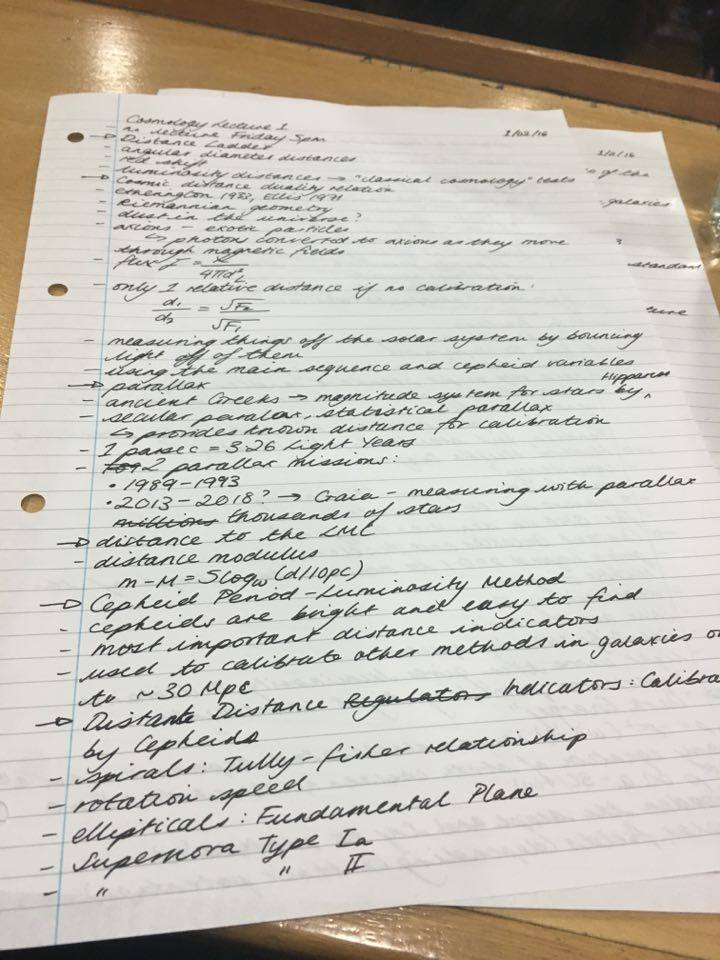 - Cosmology Lecture 1 1/02/16
- no lecture Friday 5pm
→ Distance Ladder
- angular diameter distances
- red shift
- luminosity distances → "classical cosmology" tests
→ Cosmic distance duality relation
- etherington 1933, Ellis 1971
- Riemannian geometry
- dust in the universe?
- axions - exotic particles
↳ photons converted to axions as they move
through magnetic fields
- flux F = L / 4πd²L
- only 1 relative distance if no calibration
d₁/d₂ = √F₂/√F₁
- measuring things off the solar system by bouncing
light off of them
- using the main sequence and cepheid variables
→ parallax
- ancient Greeks → magnitude system for stars by Hipparcus
- secular paralax, statistical parallax
↳ provides known distance for calibration
- 1 parsec = 3.26 Light Years
- 2 parallax missions:
• 1989-1993
• 2013-2018? → Gaia - measuring with parallax
millions thousands of stars
→ distance to the LMC
- distance modulus
m-M = 5log₁₀(d/10pc)
→ Cepheid Period-Luminosity Method
- cepheids are bright and easy to find
- most important distance indicators
- used to calibrate other methods in galaxies o
to ~ 30 Mpc
→ Distance Distance Regulators Indicators: Calibra
by Cepheids
- spirals: Tully-fisher relationship
- rotation speed
- ellipticals: Fundamental Plane
- Supernova Type Ia
- " " II
1/2/16
of the
galaxies
?
standard